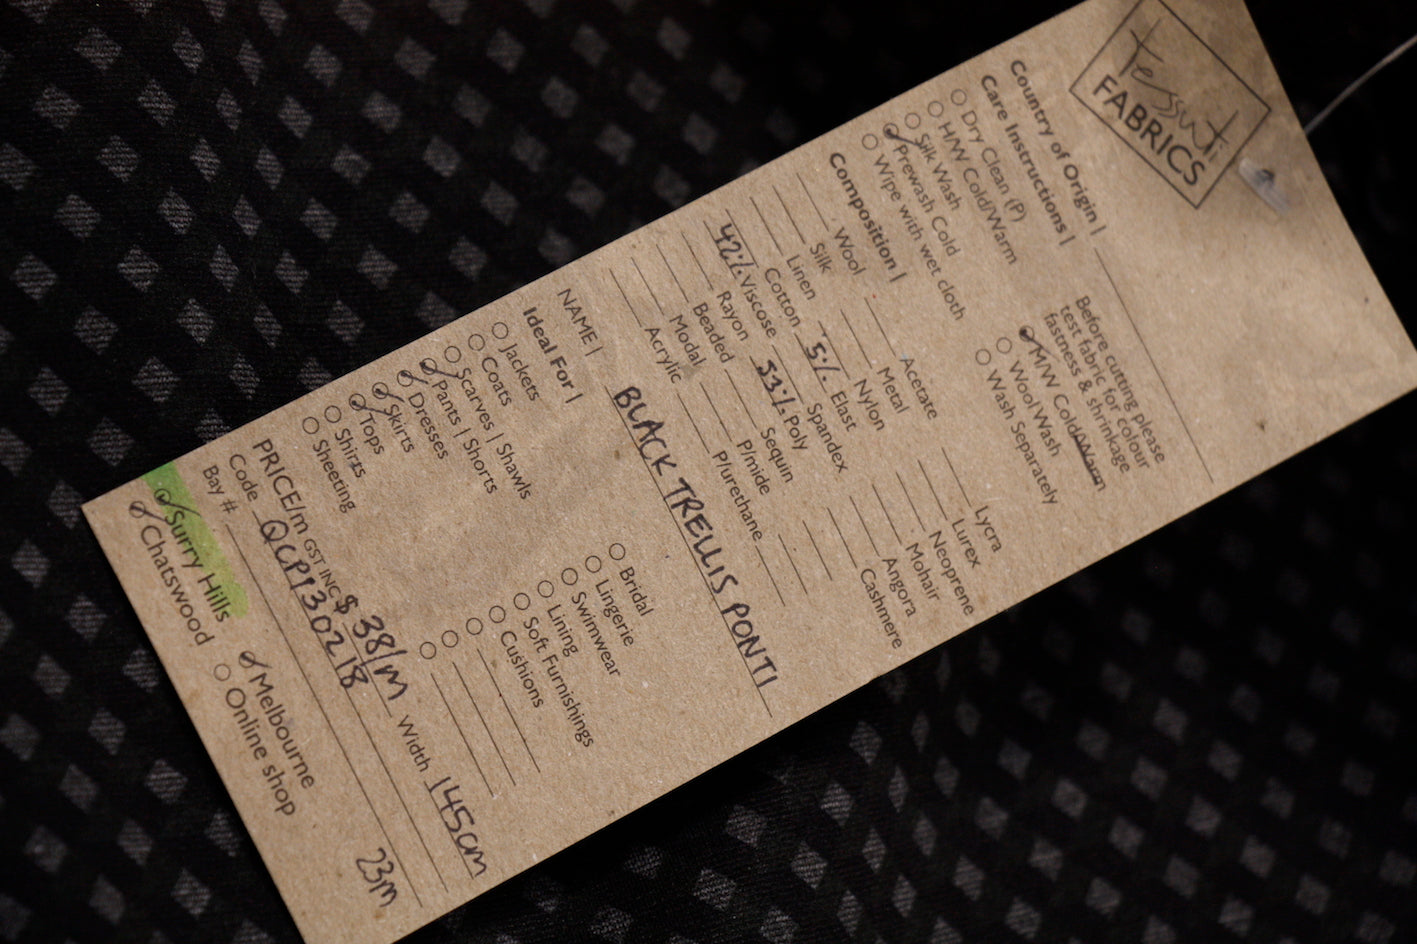 tessuti
FABRICS
Country of Origin |
Care Instructions |
Dry Clean (P)
H/W Cold/Warm
Silk Wash
Prewash Cold
Wipe with wet cloth
Before cutting please
test fabric for colour
fastness & shrinkage
M/W Cold/Warm
Wool Wash
Wash Separately
Composition |
Wool
Silk
Linen
Cotton
42% Viscose
Rayon
Beaded
Modal
Acrylic
Acetate
Metal
Nylon
5% Elast
Spandex
53% Poly
Sequin
P/mide
P/urethane
Lycra
Lurex
Neoprene
Mohair
Angora
Cashmere
NAME | BLACK TRELLIS PONTI
Ideal For |
Jackets
Coats
Scarves | Shawls
Pants | Shorts
Dresses
Skirts
Tops
Shirts
Sheeting
Bridal
Lingerie
Swimwear
Lining
Soft Furnishings
Cushions
PRICE/m GST INC $38/m Width 145cm
Code QCP130218
Bay # 23m
Surry Hills
Chatswood
Melbourne
Online shop